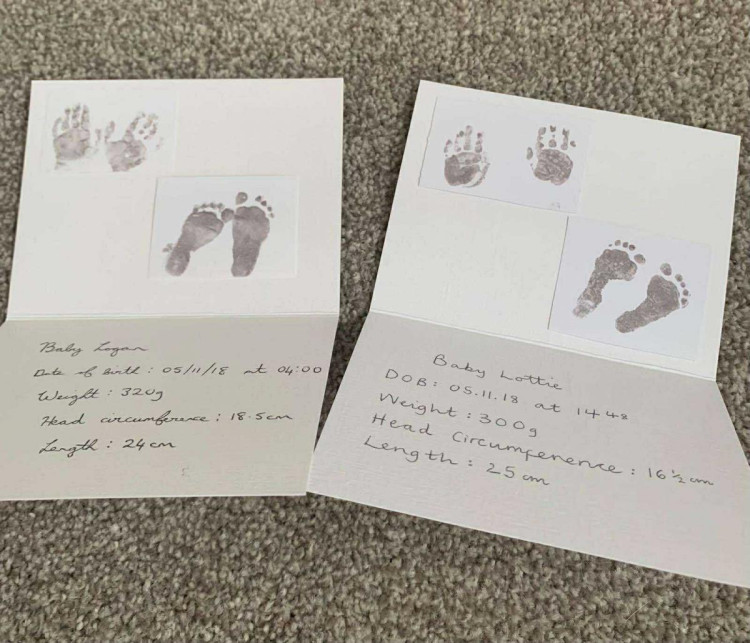 Baby Logan
Date of Birth : 05/11/18 at 04:00
Weight : 320g
Head circumference : 18.5cm
Length : 24cm
Baby Lottie
DOB : 05.11.18 at 1448
Weight : 300g
Head Circumference : 16 ½ cm
Length : 25cm